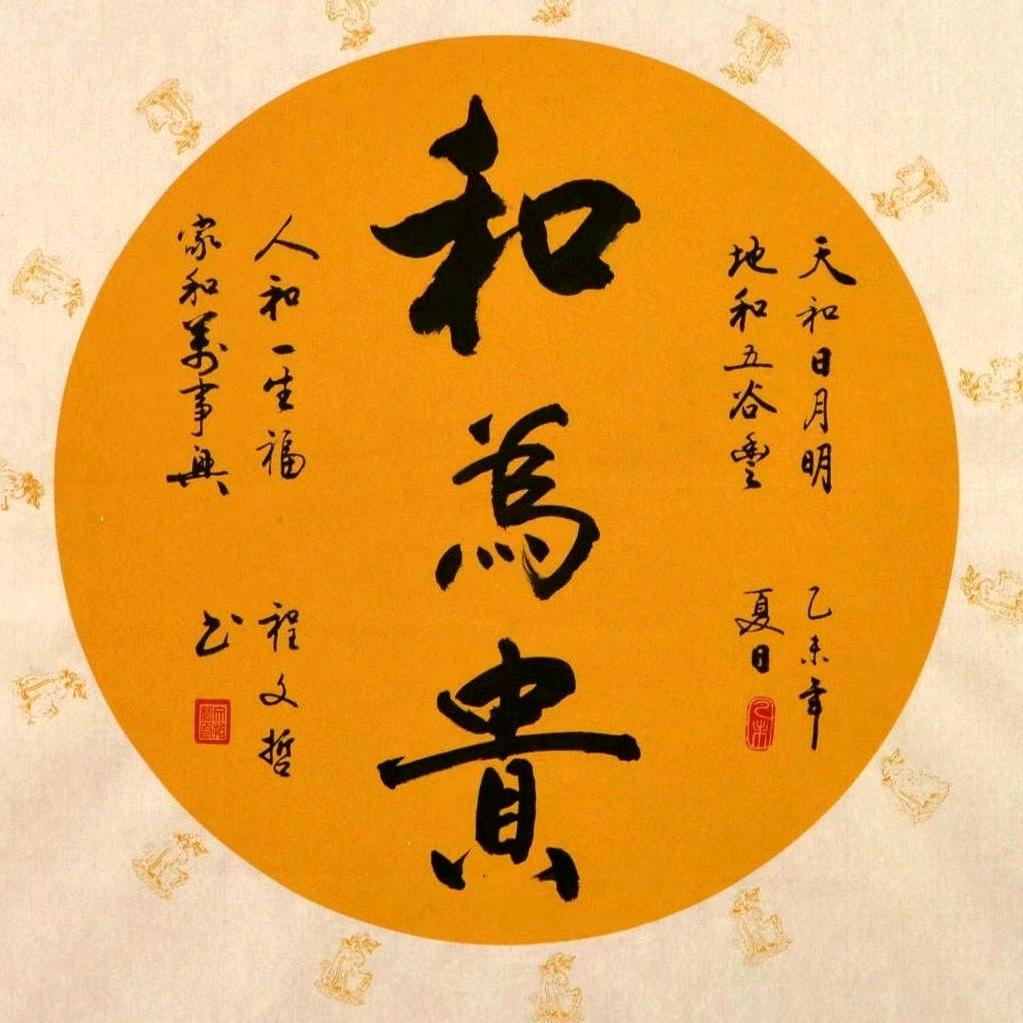 天和日月明
地和五谷豐
乙未年
夏日
乙未
和為貴
人和一生福
家和萬事興
程文哲
书